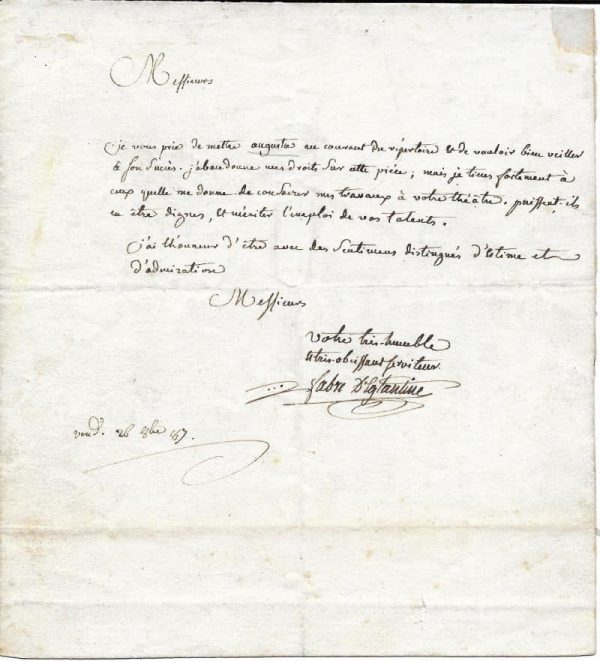 Messieurs
je vous prie de mettre augusta au courant du répertoire et de vouloir bien veiller
à son succès. j'abandonne mes droits sur cette pièce; mais je tiens fortement à
ceux quelle me donne de consacrer mes travaux à votre théâtre. puissent ils
en être dignes, et mériter l'emploi de vos talents.
j'ai l'honneur d'être avec des sentimens distingués d'estime et
d'admiration
Messieurs
votre très-humble
et très-obéissant serviteur
fabre D'Eglantine
vend. 26 8bre 87.